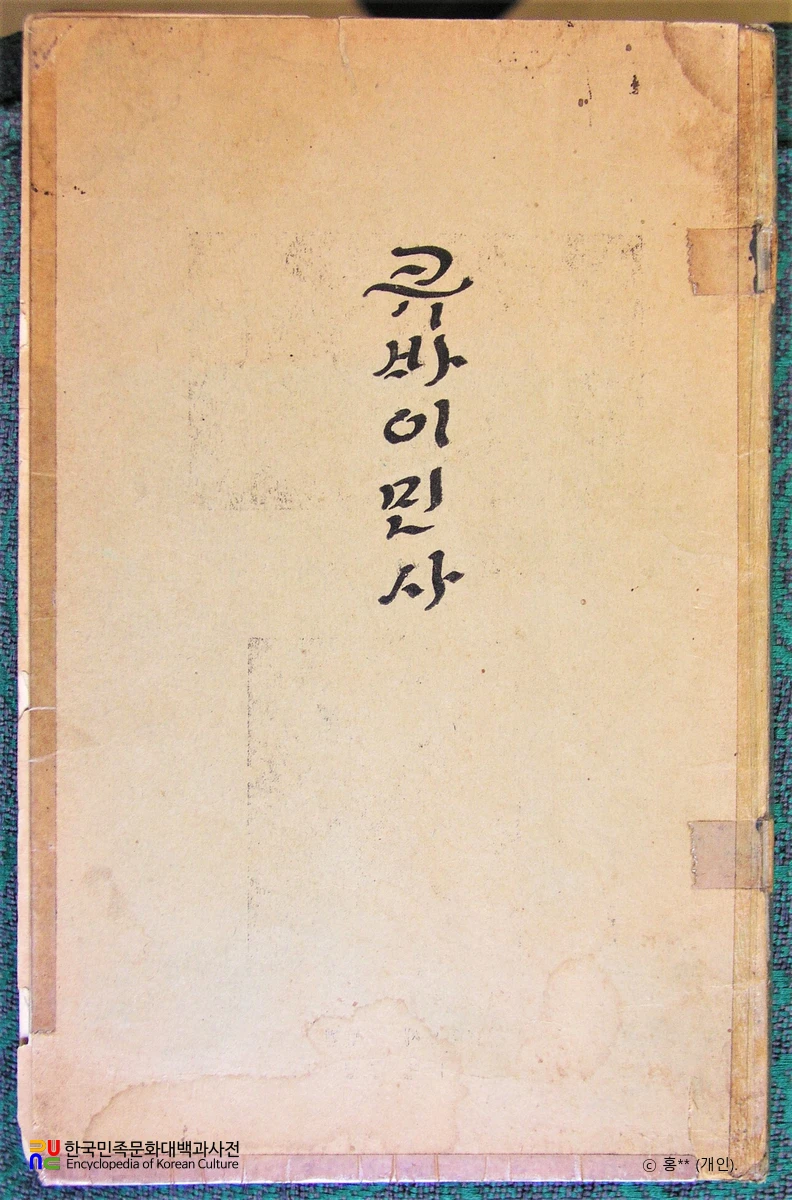 큐바이민사
한국민족문화대백과사전
Encyclopedia of Korean Culture
ⓒ 홍** (개인).